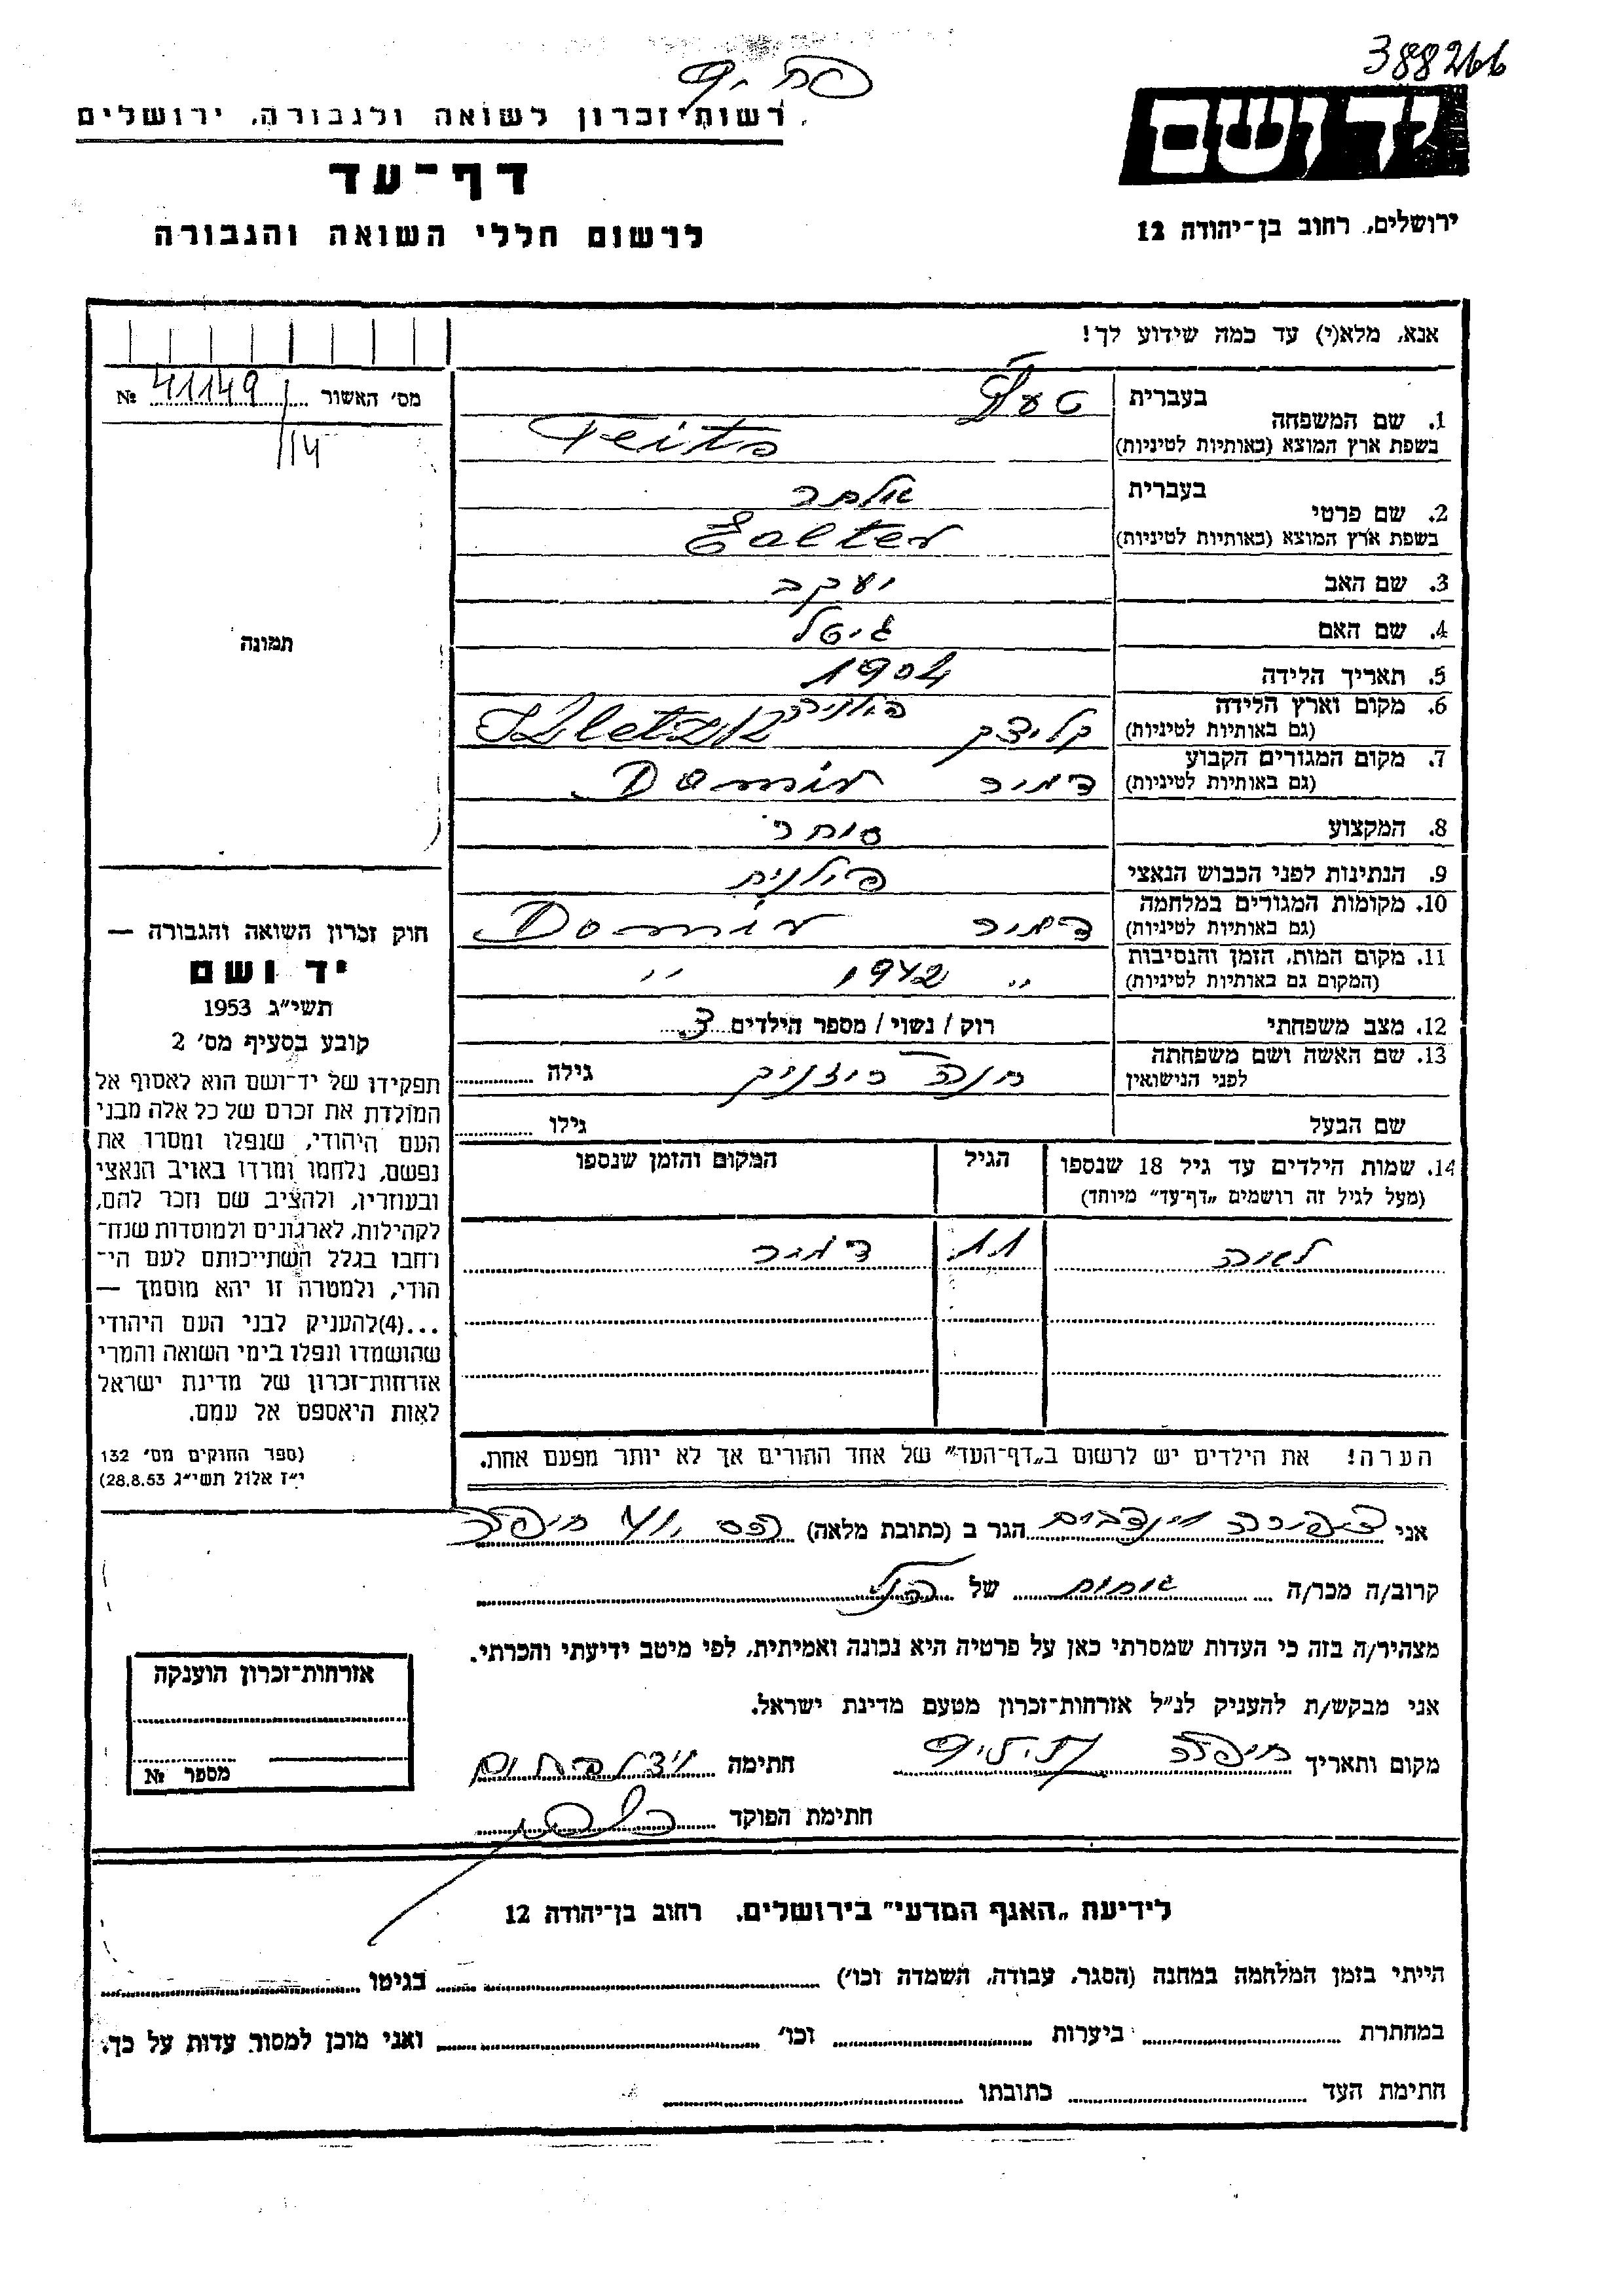 388266
רשות־זכרון לשואה ולגבורה, ירושלים
יד ושם
דף־עד
לרשום חללי השואה והגבורה
ירושלים, רחוב בן־יהודה 12
אנא, מלא(י) עד כמה שידוע לך!
מס׳ האשור 41149 №
/14
תמונה
1. שם המשפחה
בעברית
בשפת ארץ המוצא (באותיות לטיניות) Feitp
2. שם פרטי
בעברית
בשפת ארץ המוצא (באותיות לטיניות)
3. שם האב יעקב
4. שם האם גיטל
5. תאריך הלידה 1904
6. מקום וארץ הלידה
(גם באותיות לטיניות) קליצק
7. מקום המגורים הקבוע
(גם באותיות לטיניות) דמיר Domir
8. המקצוע סוחר
9. הנתינות לפני הכבוש הנאצי פולנית
10. מקומות המגורים במלחמה
(גם באותיות לטיניות) דמיר Domir
11. מקום המות, הזמן והנסיבות
(המקום גם באותיות לטיניות) ״ 1942 ״
12. מצב משפחתי רוק / נשוי / מספר הילדים 3
13. שם האשה ושם משפחתה
לפני הנישואין חנה גילה
שם הבעל גילו
14. שמות הילדים עד גיל 18 שנספו הגיל המקום והזמן שנספו
(מעל לגיל זה רושמים „דף־עד״ מיוחד)
לאה 11 דמיר
הערה! את הילדים יש לרשום ב„דף־העד״ של אחד ההורים אך לא יותר מפעם אחת.
חוק זכרון השואה והגבורה —
יד ושם
תשי״ג 1953
קובע בסעיף מס׳ 2
תפקידו של יד־ושם הוא לאסוף אל
המולדת את זכרם של כל אלה מבני
העם היהודי, שנפלו ומסרו את
נפשם, נלחמו ומרדו באויב הנאצי
ובעוזריו, ולהציב שם וזכר להם,
לקהילות, לארגונים ולמוסדות שנח־
רחבו בגלל השתייכותם לעם הי־
הודי, ולמטרה זו יהא מוסמך —
...(4)להעניק לבני העם היהודי
שהושמדו ונפלו בימי השואה והמרי
אזרחות־זכרון של מדינת ישראל
לאות היאספם אל עמם.
(ספר החוקים מס׳ 132
י״ז אלול תשי״ג 28.8.53)
אני ציפורה הגר ב (כתובת מלאה) חיפה
קרוב/ה מכר/ה אחות של הנ״ל
מצהיר/ה בזה כי העדות שמסרתי כאן על פרטיה היא נכונה ואמיתית, לפי מיטב ידיעתי והכרתי.
אני מבקש/ת להעניק לנ״ל אזרחות־זכרון מטעם מדינת ישראל.
מקום ותאריך חיפה חתימה
חתימת הפוקד
אזרחות־זכרון הוענקה
מספר №
לידיעת „האגף המדעי״ בירושלים, רחוב בן־יהודה 12
הייתי בזמן המלחמה במחנה (הסגר, עבודה, השמדה וכו׳) בגיטו
במחתרת ביערות וכו׳ ואני מוכן למסור עדות על כך.
חתימת העד כתובתו